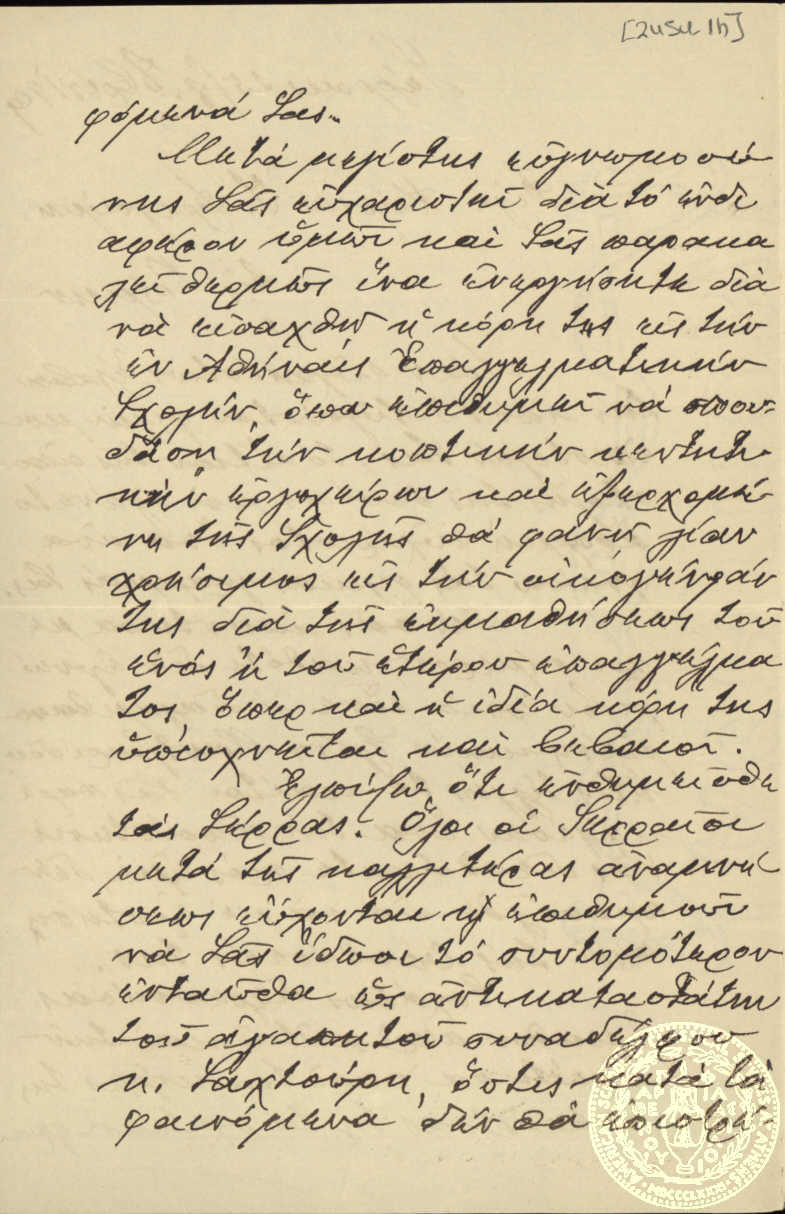 φόμενά Σας.
Μετά μεγίστης εὐγνωμοσύ
νης Σᾶς εὐχαριστεῖ διὰ τό ἐνδι
αφέρον ὑμῶν καὶ Σᾶς παρακα
λεῖ θερμῶς ἵνα ἐνεργήσητε διὰ
νὰ εἰσαχθῇ ἡ κόρη της εἰς τήν
ἐν Ἀθήναις Ἐπαγγελματικήν
Σχολήν, ὅπου ἐπιθυμεῖ νά σπου-
δάσῃ τήν κοπτικήν κεντητι
κήν ἐργοχείρων καὶ ἐξερχομέ
νη τῆς Σχολῆς θά φανῇ λίαν
χρήσιμος εἰς τήν οἰκογένειάν
της διά τῆς ἐκμαθήσεως τοῦ
ἑνός ἤ τοῦ ἑτέρου ἐπαγγέλμα
τος, ὅπερ καὶ ἡ ἰδία κόρη της
ὑπόσχνεῖται καὶ βεβαιοῖ.
Ἐλπίζω ὅτι ἐνθυμεῖσθε
τάς Σέρρας. Ὅλοι οἱ Σερραῖοι
μετά τῆς καλλιτέρας ἀναμνή
σεως εὔχονται κ ἐπιθυμοῦν
νὰ Σᾶς ἴδωσι τό συντομότερον
ἐνταῦθα ὡς ἀντικαταστάτην
τοῦ ἀγαπητοῦ συναδέλφου
κ. Σαχτούρη, ὅστις κατά τά
φαινόμενα δέν θά ἐπιστρέ-